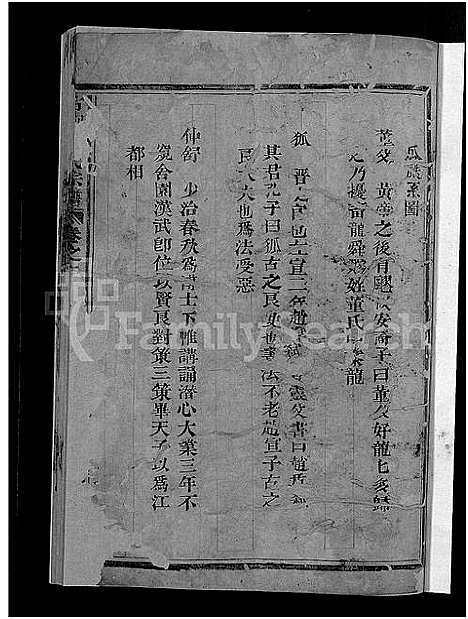 瓜瓞系圖
董父 黃帝之後有飂 安裔子曰董父好龍七多歸
之乃擾畜龍舜賜姓董氏 豢龍
狐 晉 宣二年趙 靈 書曰趙盾
其君孔子曰狐古之良史也書法不 趙宣子古之
良大夫也爲法受惡
仲舒 少治春秋爲博士下帷講誦潛心大業三年不
窺公園漢武卽位以賢良對策三策畢天子以爲江
都相
氏宗譜 卷之
FamilySearch